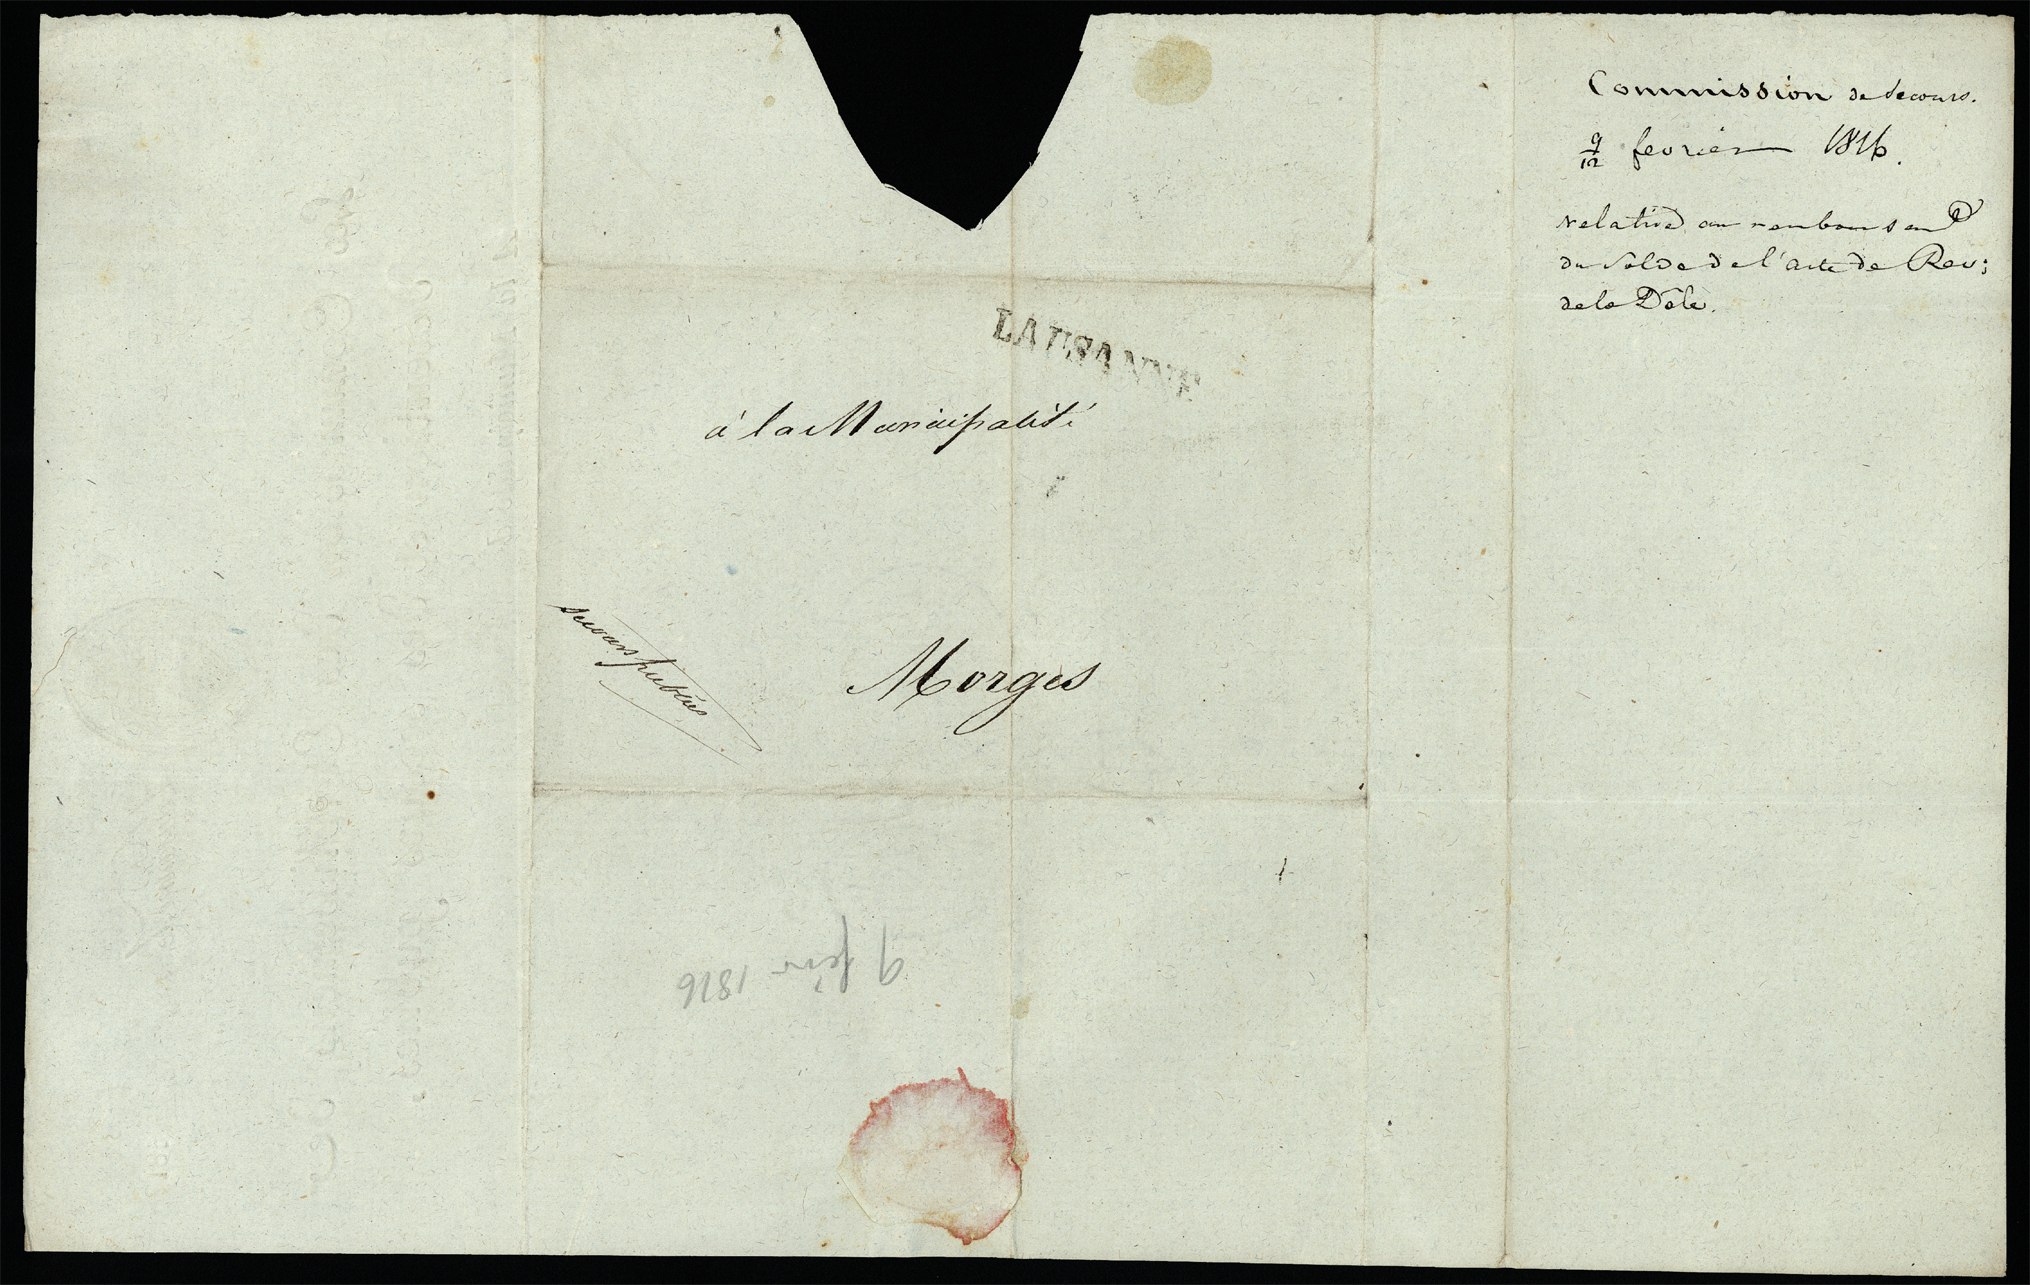 Commission de Secours.
9/12 fevrier 1816.
relative au remboursem.t
du Solde de l'acte de Rev:
de la Dôle.
LAUSANNE
à la Municipalité
Secours publics
Morges
9 fevr 1816